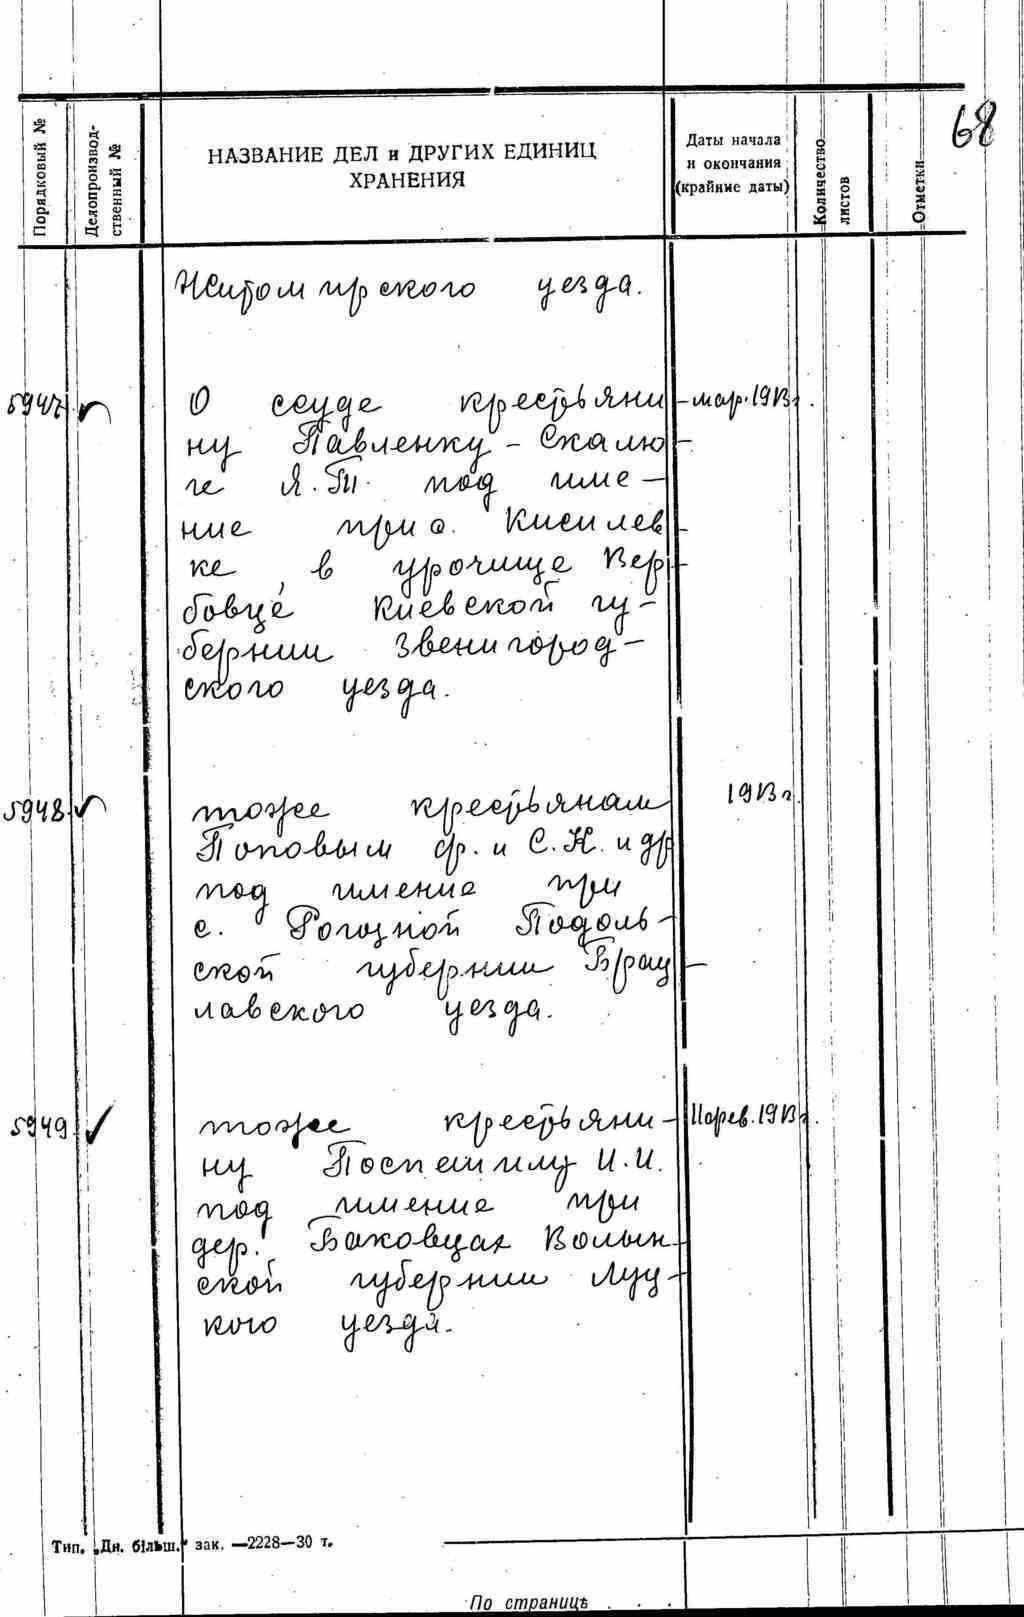 68
Порядковый №
Делопроизвод-
ственный №
НАЗВАНИЕ ДЕЛ и ДРУГИХ ЕДИНИЦ
ХРАНЕНИЯ
Даты начала
и окончания
(крайние даты)
Количество
листов
Отметки
Житомирского уезда.
5947 О ссуде крестьяни- мар. 1913 г.
ну Павленку - Скалю-
ге Я.Т. под име-
ние при с. Кисилев-
ке, в урочище Вер-
бовце Киевской гу-
бернии Звенигород-
ского уезда.
5948 тоже крестьянам 1913 г.
Поповым ф. и С.К. и др
под имение при
с. Рогозной Подоль-
ской губернии Брац-
лавского уезда.
5949 тоже крестьяни- 1913 г.
ну И.И.
под имение при
дер. Баковцах Волын-
ской губернии Луц-
кого уезда.
Тип. „Дн. більш." зак. —2228—30 т.
По странице . . .